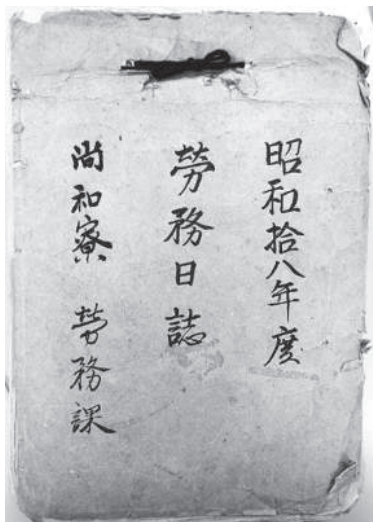 昭和拾八年度
勞務日誌
尚和寮 勞務課